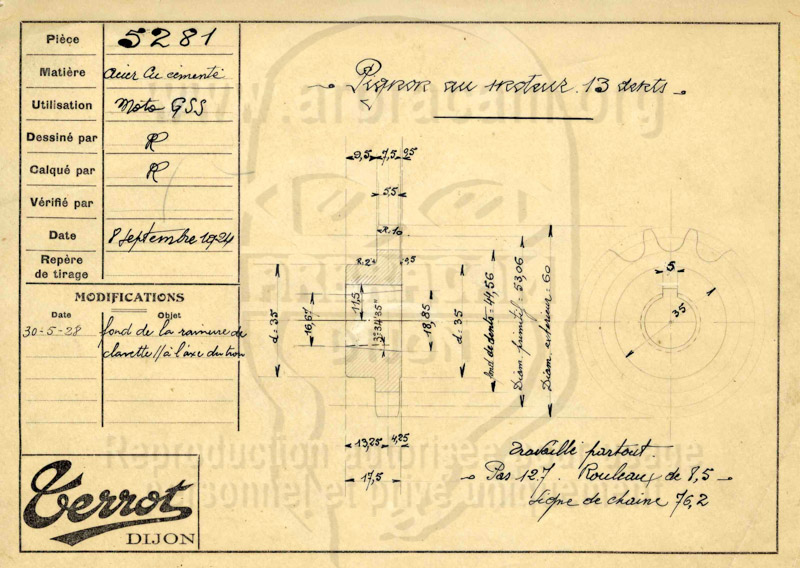 Pièce 5281
Matière acier Cr cémenté
Utilisation Moto GSS
Dessiné par R
Calqué par R
Vérifié par
Date 8 Septembre 1924
Repère
de tirage
MODIFICATIONS
Date Objet
30-5-28 fond de la rainure de
clavette // à l'axe du
Terrot
DIJON
Pignon au moteur 13 dents
9,5 7,5 0,5
5,5
R.10
R.2 0,5
d=35
16,67
11,5
3°34'35"
18,85
d=35
fond de dents=44,56
Diam. primitif=53,06
Diam. extérieur=60
5
35
13,25 4,25
17,5
Travaillé partout
Pas 12.7 Rouleaux de 8,5
Ligne de chaine 76,2
www.arbracam.org
DIJON
Reproduction autorisée usage
personnel et privé uniquement